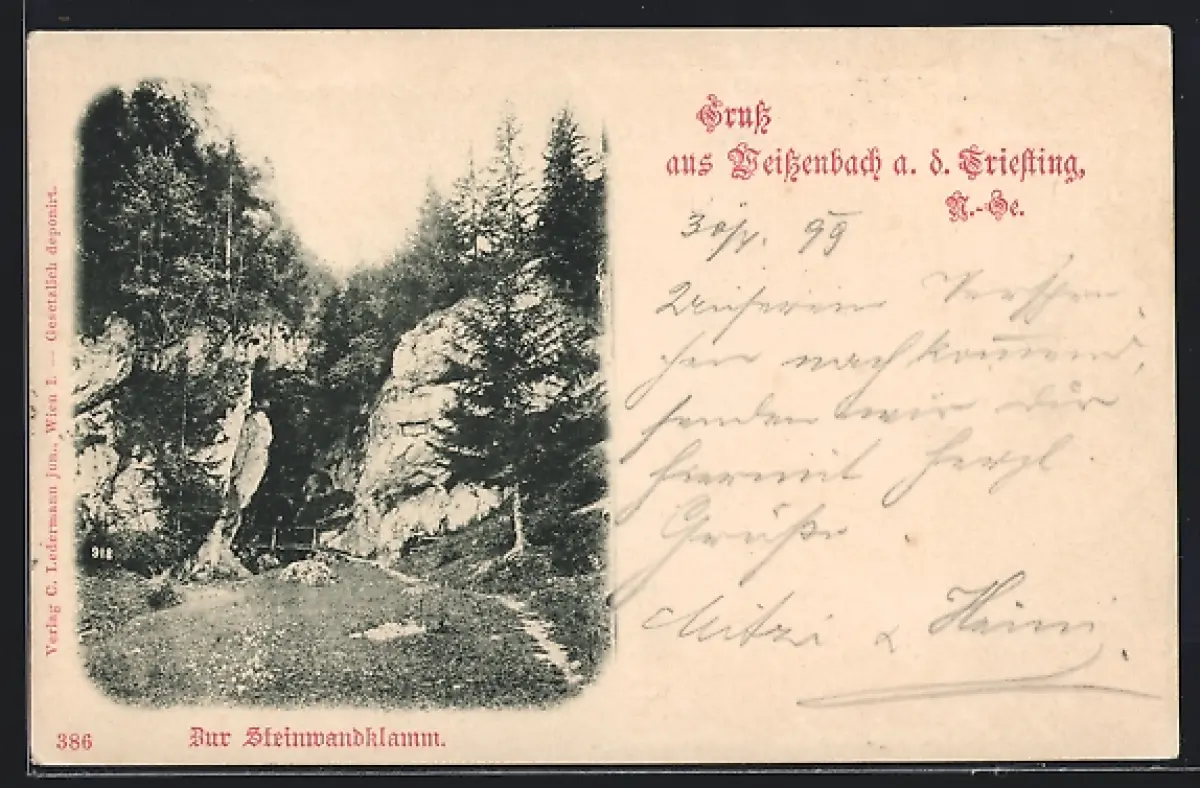 Gruß
aus Weißenbach a. d. Triesting,
N.-Oe.
30/V. 99
Unserem Verspre
chen nachkommend,
senden wir Dir
hiermit herzl.
Grüße.
Mitzi &
Verlag C. Ledermann jun., Wien I. — Gesetzlich deponirt.
918
386
Zur Steinwandklamm.